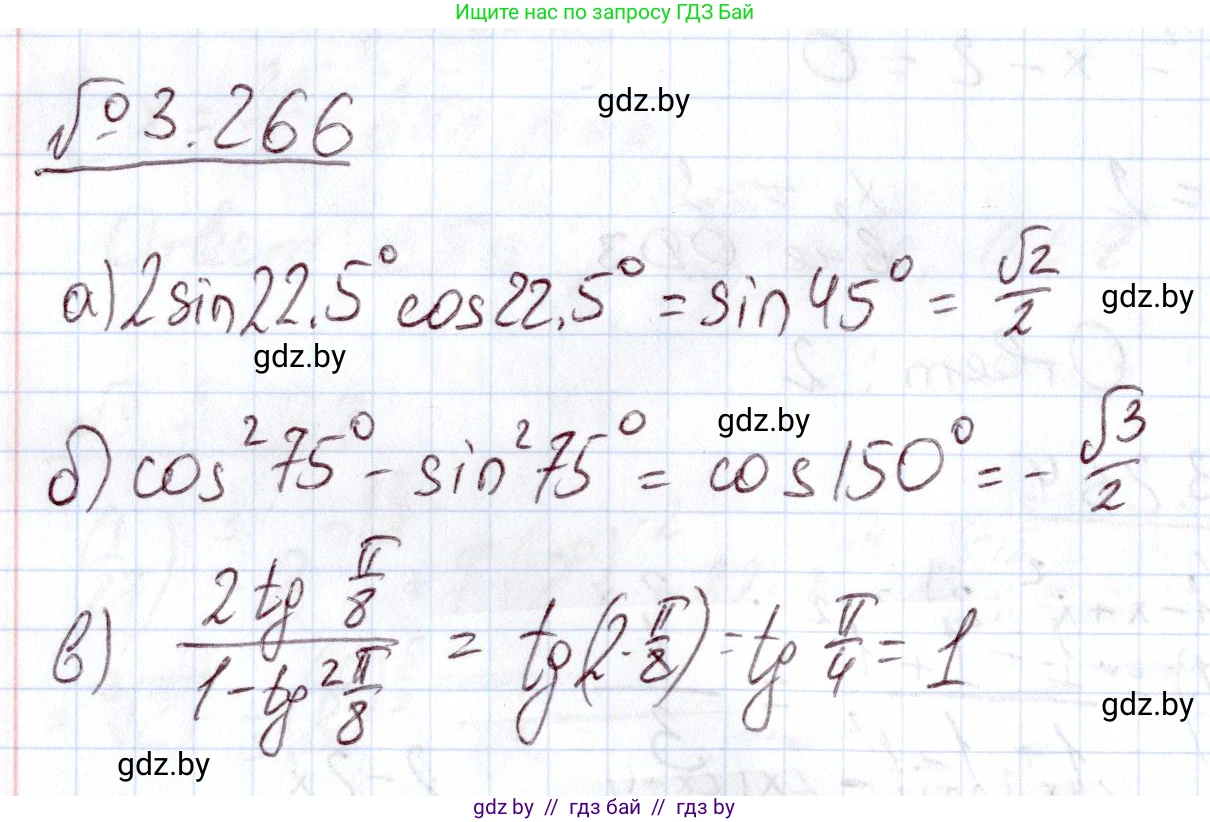 Ищите нас по запросу ГДЗ Бай
№ 3.266
gdz.by
а) 2sin22,5° cos22,5° = sin45° = √2/2
gdz.by
gdz.by
б) cos²75° - sin²75° = cos150° = -√3/2
gdz.by
в) (2tg π/8)/(1-tg² π/8) = tg(2·π/8) = tg π/4 = 1
gdz.by
gdz.by
gdz.by // гдз бай // гдз by